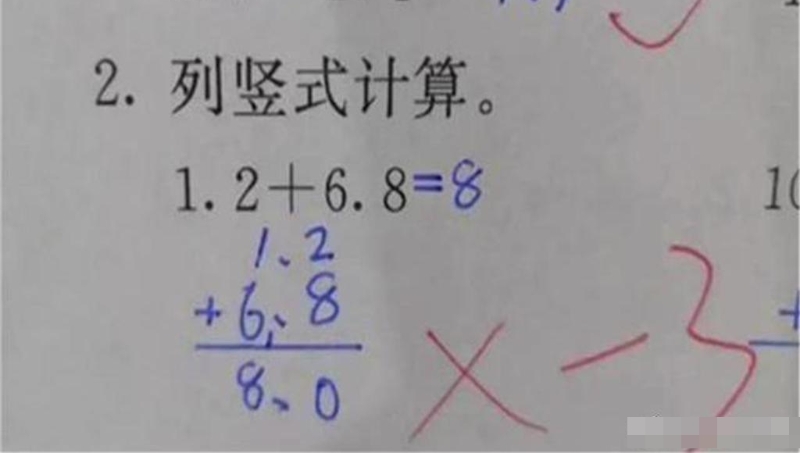 2. 列竖式计算。
1.2+6.8=8
1.2
+6.8
8.0
× -3
10
+